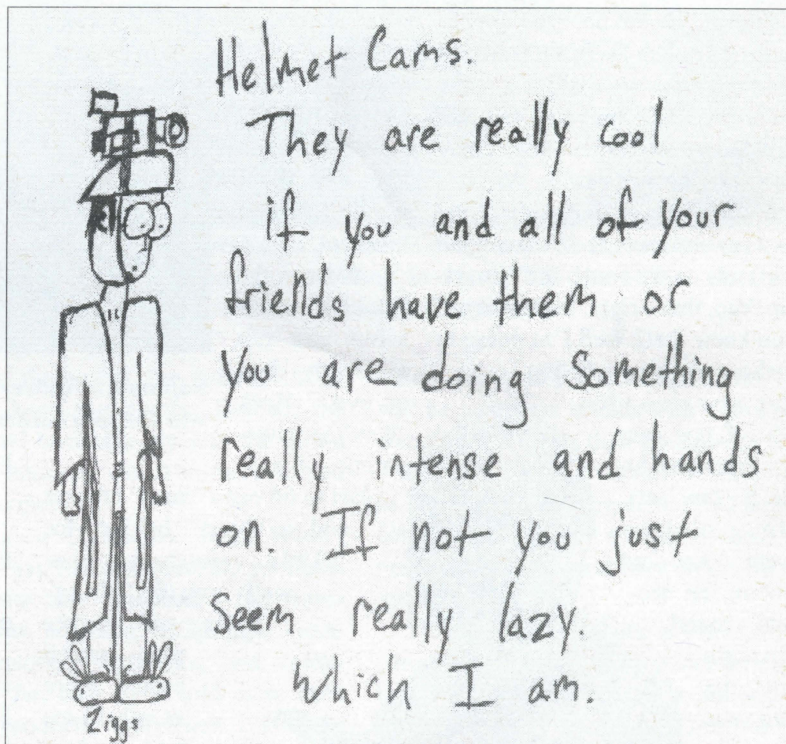 Helmet Cams.
They are really cool
if you and all of your
friends have them or
you are doing something
really intense and hands
on. If not you just
seem really lazy.
Which I am.
Ziggs